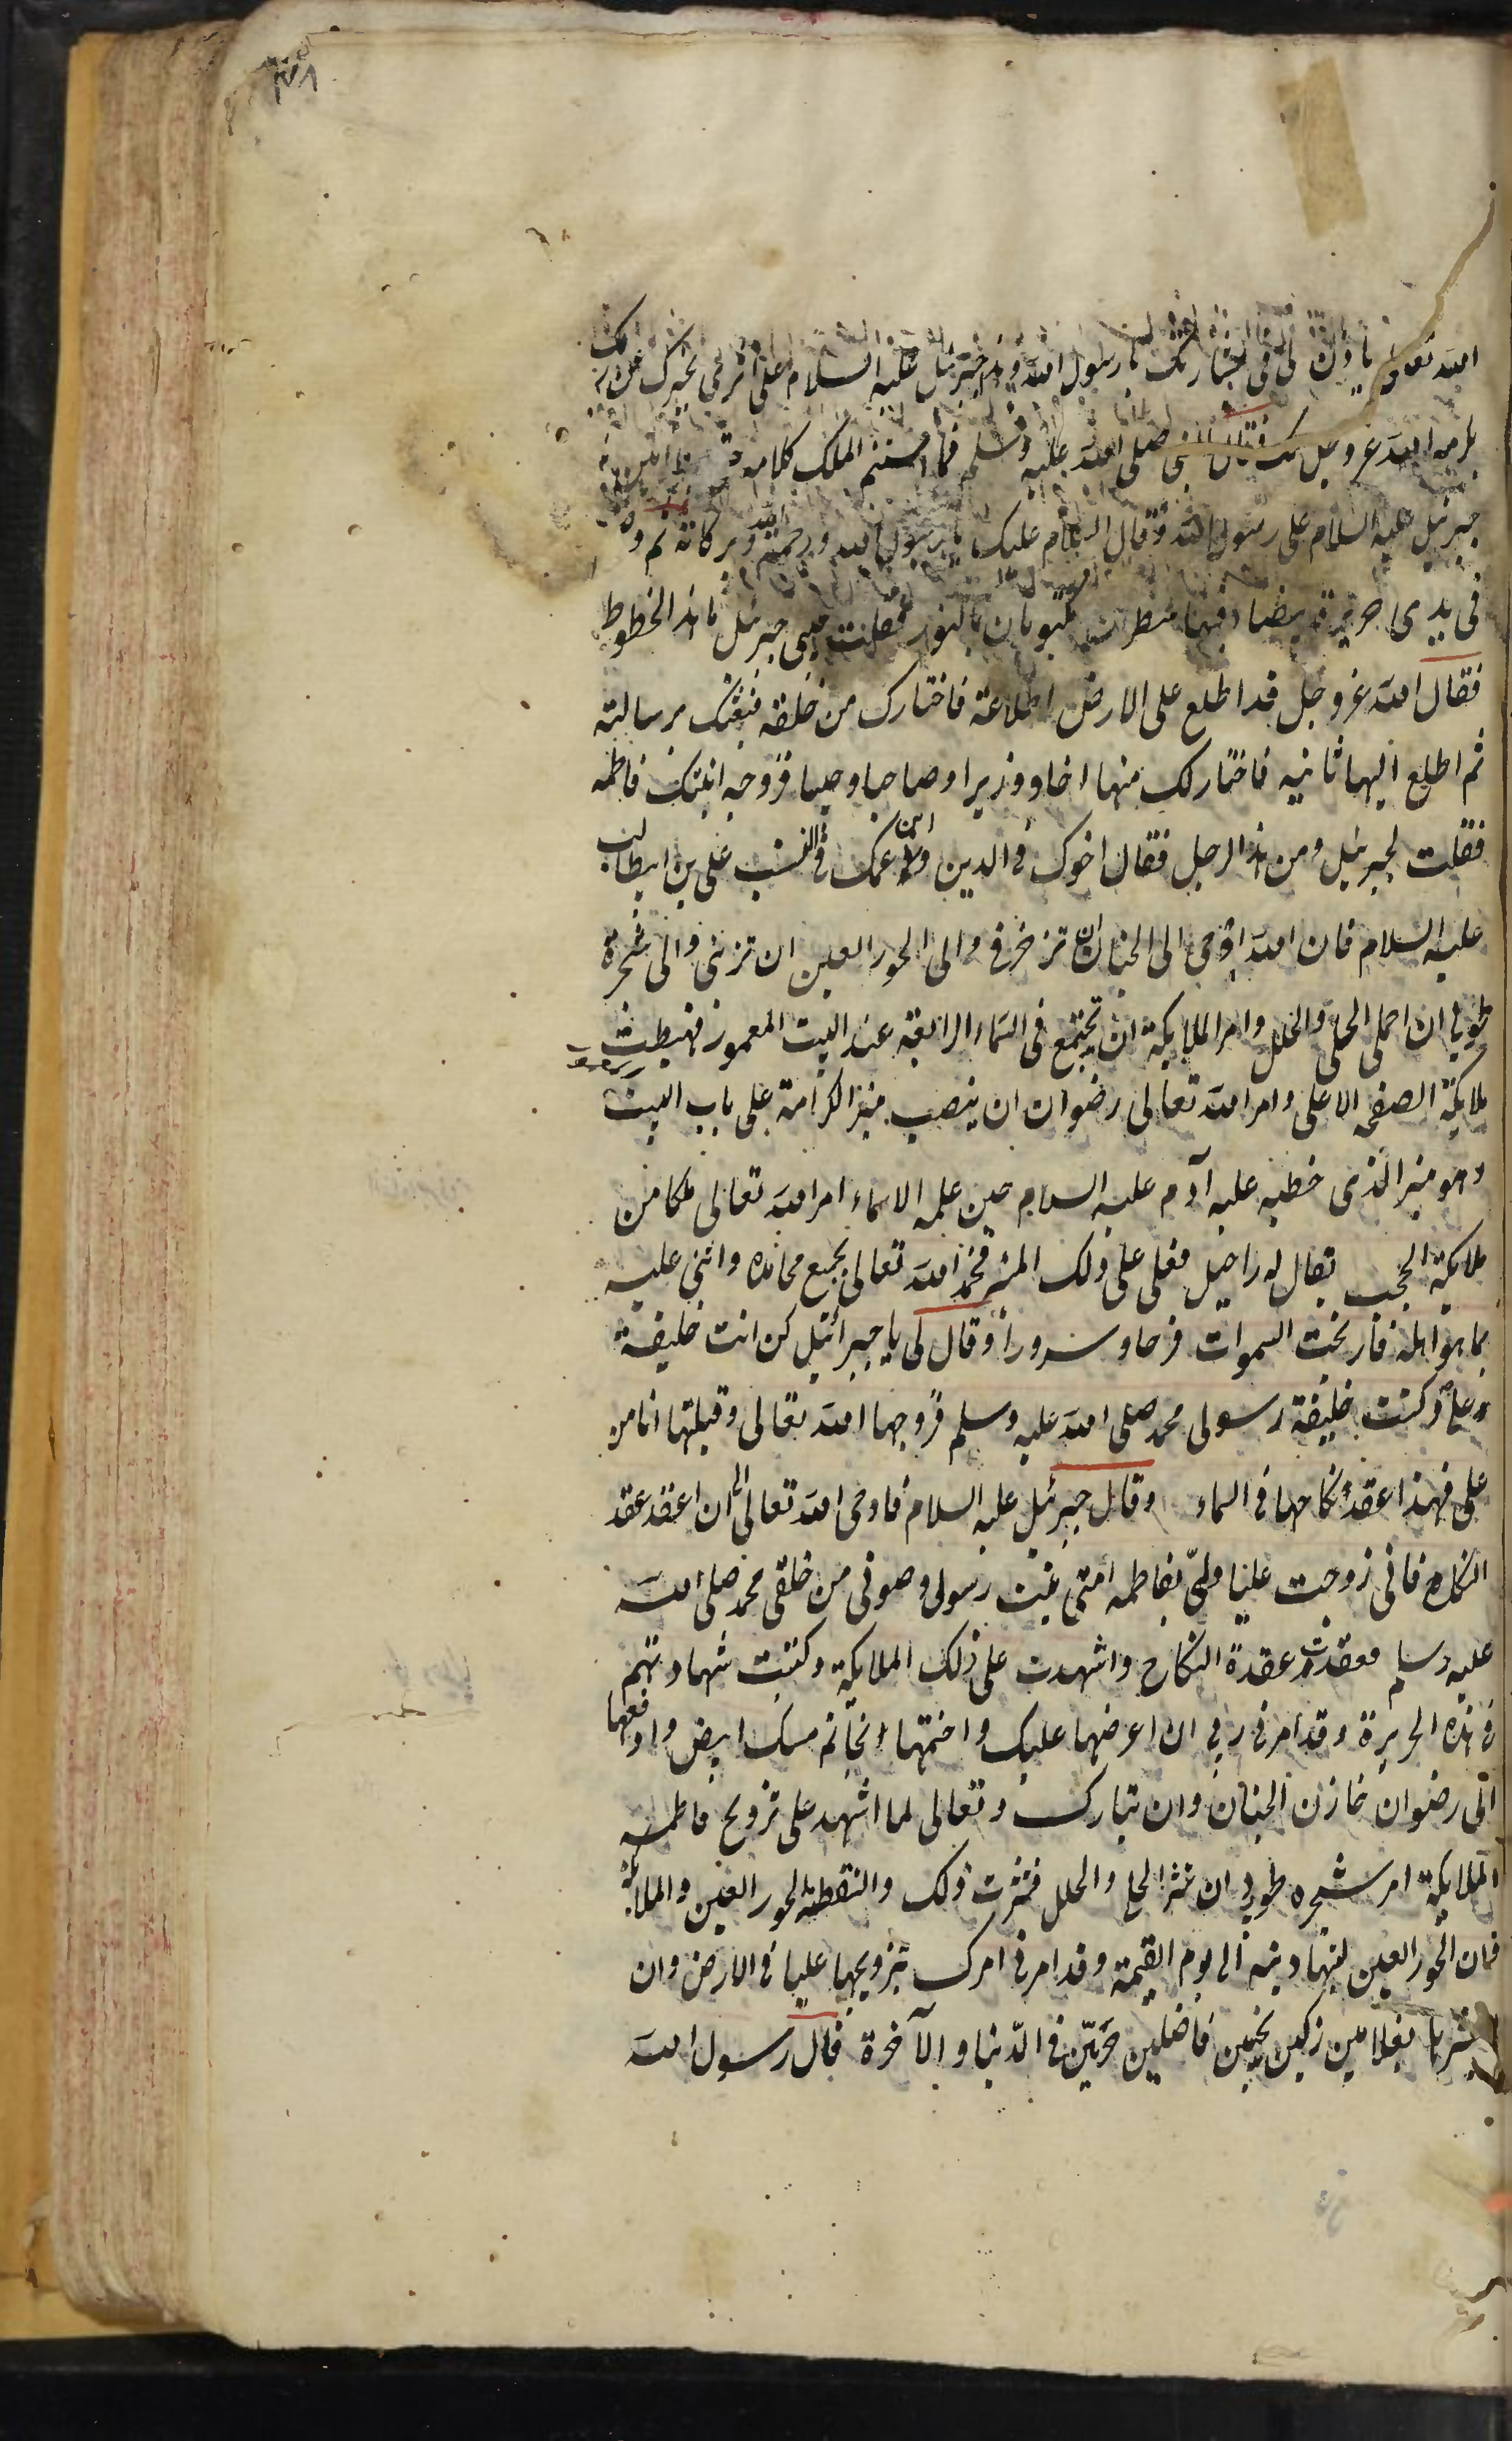 الله تعالى ياذن لى فى بشارتك يا رسول الله وهذا جبرئيل عليه السلام على اثرى يخبرك عن ربك
بكرامة الله عز وجل لك فقال النبى صلى الله عليه وسلم فما استتم الملك كلامه
جبرئيل عليه السلام على رسول الله فقال السلام عليك يا رسول الله ورحمة الله وبركاته ثم وضع
فى يدى حريرة بيضا وفيها سطران مكتوبان بالنور فقلت حبيبى جبرئيل ما هذه الخطوط
فقال الله عز وجل قد اطلع على الارض اطلاعة فاختارك من خلقه فبعثك برسالته
ثم اطلع اليها ثانيه فاختار لك منها اخا ووزيرا وصاحبا وصيا فزوجه ابنتك فاطمه
فقلت لجبرئيل ومن هذا الرجل فقال اخوك فى الدين وابن عمك فى النسب على بن ابيطالب
عليه السلام فان الله اوحى الى الجنان ان تزخرفى والى الحور العين ان تزينى والى شجرة
طوبى ان احملى الحلى والحلل وامر الملايكة ان تجتمع فى السماء الرابعة عند البيت المعمور فهبطت
ملايكة الصفح الاعلى وامر الله تعالى رضوان ان ينصب منبر الكرامة على باب البيت
وهو منبر الذى خطبه عليه آدم عليه السلام حين علمه الاسماء امر الله تعالى ملكا من
ملايكة الحجب يقال له راحيل فعلى على ذلك المنبر فحمد الله تعالى بجميع محامده واثنى عليه
بما هو اهله فارتجت السموات فرحا وسرورا وقال لى يا جبرائيل كن انت خليفة
على وكنت خليفة رسولى محمد صلى الله عليه وسلم فزوجها الله تعالى وقبلتها انا من
على فهذا عقد نكاحها فى السماء وقال جبرئيل عليه السلام فاوحى الله تعالى الى ان اعقد عقد
النكاح فانى زوجت عليا وليى بفاطمه امتى بنت رسولى وصفوتى من خلقى محمد صلى الله
عليه وسلم فعقدت عقدة النكاح واشهدت على ذلك الملايكة وكتبت شهادتهم
فى هذه الحريرة وقد امرنى ربى ان اعرضها عليك واختمها بخاتم مسك ابيض وادفعها
الى رضوان خازن الجنان وان تبارك وتعالى لما اشهد على تزويج فاطمه
الملايكة امر شجره طوبى ان تنثر الحلى والحلل فنثرت ذلك والتقطته الحور العين والملايكة
فان الحور العين لتهادينه الى يوم القيمة وقد امرنى امرك بتزويجها عليا فى الارض وان
تبشرها بغلامين زكيين نجيبين فاضلين خيرين فى الدنيا والآخرة فقال رسول الله